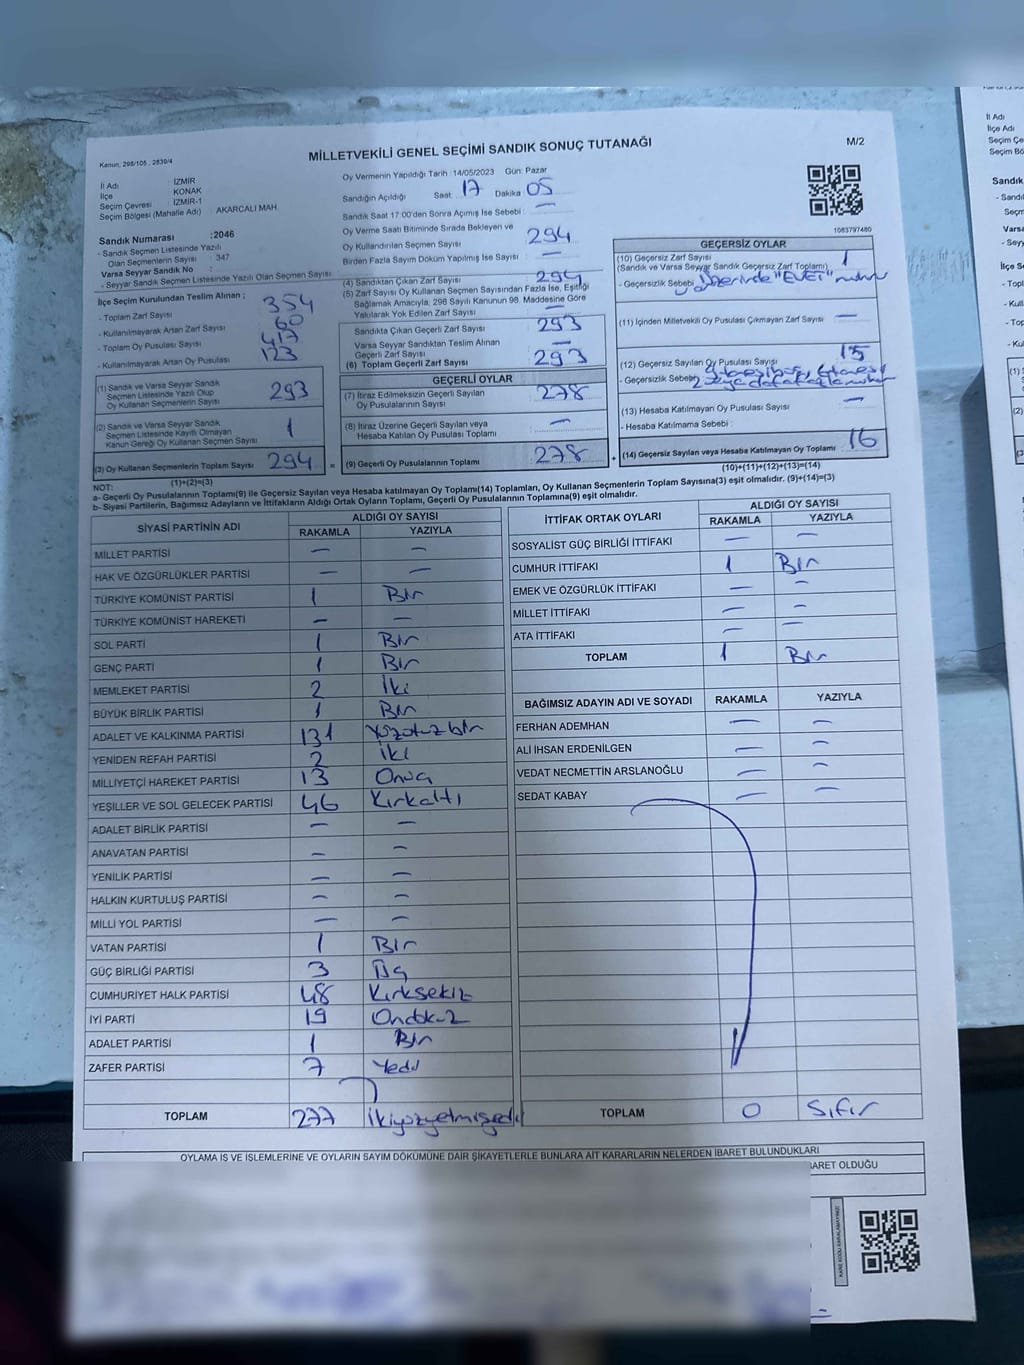 Kanun, 298/105 , 2839/4
MİLLETVEKİLİ GENEL SEÇİMİ SANDIK SONUÇ TUTANAĞI
M/2
İl Adı : İZMİR
İlçe : KONAK
Seçim Çevresi : İZMİR-1
Seçim Bölgesi (Mahalle Adı) : AKARCALI MAH.
Sandık Numarası :2046
- Sandık Seçmen Listesinde Yazılı
Olan Seçmenlerin Sayısı : 347
Varsa Seyyar Sandık No :
- Seyyar Sandık Seçmen Listesinde Yazılı Olan Seçmen Sayısı :
İlçe Seçim Kurulundan Teslim Alınan ;
- Toplam Zarf Sayısı 354
- Kullanılmayarak Artan Zarf Sayısı 60
- Toplam Oy Pusulası 417
- Kullanılmayarak Artan Oy Pusulası 123
(1) Sandık ve Varsa Seyyar Sandık
Seçmen Listesinde Yazılı Olup
Oy Kullanan Seçmenlerin Sayısı 293
(2) Sandık ve Varsa Seyyar Sandık
Seçmen Listesinde Kayıtlı Olmayan
Kanun Gereği Oy Kullanan Seçmen Sayısı 1
(3) Oy Kullanan Seçmenlerin Toplam Sayısı 294 =
(1)+(2)=(3)
Oy Vermenin Yapıldığı Tarih :14/05/2023 Gün: Pazar
Sandığın Açıldığı Saat: 17 Dakika: 05
Sandık Saat 17:00'den Sonra Açılmış İse Sebebi : —
Oy Verme Saati Bitiminde Sırada Bekleyen ve
Oy Kullandırılan Seçmen Sayısı 294
Birden Fazla Sayım Döküm Yapılmış İse Sayısı : —
(4) Sandıktan Çıkan Zarf Sayısı 294
(5) Zarf Sayısı Oy Kullanan Seçmen Sayısından Fazla İse, Eşitliği
Sağlamak Amacıyla; 298 Sayılı Kanunun 98. Maddesine Göre
Yakılarak Yok Edilen Zarf Sayısı —
Sandıkta Çıkan Geçerli Zarf Sayısı 293
Varsa Seyyar Sandıktan Teslim Alınan
Geçerli Zarf Sayısı —
(6) Toplam Geçerli Zarf Sayısı 293
GEÇERLİ OYLAR
(7) İtiraz Edilmeksizin Geçerli Sayılan
Oy Pusulasının Sayısı 278
(8) İtiraz Üzerine Geçerli Sayılan veya
Hesaba Katılan Oy Pusulası Toplamı —
(9) Geçerli Oy Pusulalarının Toplamı 278 +
1083797480
GEÇERSİZ OYLAR
(10) Geçersiz Zarf Sayısı 1
(Sandık ve Varsa Seyyar Sandık Geçersiz Zarf Toplamı)
- Geçersizlik Sebebi : Üzerinde "EVET"
(11) İçinden Milletvekili Oy Pusulası Çıkmayan Zarf Sayısı —
(12) Geçersiz Sayılan Oy Pusulası Sayısı 15
- Geçersizlik Sebebi
(13) Hesaba Katılmayan Oy Pusulası Sayısı —
- Hesaba Katılmama Sebebi :
(14) Geçersiz Sayılan veya Hesaba Katılmayan Oy Toplamı 16
(10)+(11)+(12)+(13)=(14)
NOT:
a- Geçerli Oy Pusulalarının Toplamı(9) ile Geçersiz Sayılan veya Hesaba katılmayan Oy Toplam(14) Toplamları, Oy Kullanan Seçmenlerin Toplam Sayısına(3) eşit olmalıdır. (9)+(14)=(3)
b- Siyasi Partilerin, Bağımsız Adayların ve İttifakların Aldığı Ortak Oyların Toplamı, Geçerli Oy Pusulalarının Toplamına(9) eşit olmalıdır.
SİYASİ PARTİNİN ADI ALDIĞI OY SAYISI
RAKAMLA YAZIYLA
MİLLET PARTİSİ — —
HAK VE ÖZGÜRLÜKLER PARTİSİ — —
TÜRKİYE KOMÜNİST PARTİSİ 1 Bir
TÜRKİYE KOMÜNİST HAREKETİ — —
SOL PARTİ 1 Bir
GENÇ PARTİ 1 Bir
MEMLEKET PARTİSİ 2 İki
BÜYÜK BİRLİK PARTİSİ 1 Bir
ADALET VE KALKINMA PARTİSİ 131 Yüzotuzbir
YENİDEN REFAH PARTİSİ 2 İki
MİLLİYETÇİ HAREKET PARTİSİ 13 Onüç
YEŞİLLER VE SOL GELECEK PARTİSİ 46 Kırkaltı
ADALET BİRLİK PARTİSİ — —
ANAVATAN PARTİSİ — —
YENİLİK PARTİSİ — —
HALKIN KURTULUŞ PARTİSİ — —
MİLLİ YOL PARTİSİ — —
VATAN PARTİSİ 1 Bir
GÜÇ BİRLİĞİ PARTİSİ 3 Üç
CUMHURİYET HALK PARTİSİ 48 Kırksekiz
İYİ PARTİ 19 Ondokuz
ADALET PARTİSİ 1 Bir
ZAFER PARTİSİ 7 Yedi
TOPLAM 277 İkiyüzyetmişyedi
İTTİFAK ORTAK OYLARI ALDIĞI OY SAYISI
RAKAMLA YAZIYLA
SOSYALİST GÜÇ BİRLİĞİ İTTİFAKI — —
CUMHUR İTTİFAKI 1 Bir
EMEK VE ÖZGÜRLÜK İTTİFAKI — —
MİLLET İTTİFAKI — —
ATA İTTİFAKI — —
TOPLAM 1 Bir
BAĞIMSIZ ADAYIN ADI VE SOYADI RAKAMLA YAZIYLA
FERHAN ADEMHAN — —
ALİ İHSAN ERDENİLGEN — —
VEDAT NECMETTİN ARSLANOĞLU — —
SEDAT KABAY — —
TOPLAM 0 Sıfır
OYLAMA İŞ VE İŞLEMLERİNE VE OYLARIN SAYIM DÖKÜMÜNE DAİR ŞİKAYETLERLE BUNLARA AİT KARARLARIN NELERDEN İBARET BULUNDUKLARI
BARET OLDUĞU
İl Adı
İlçe Adı